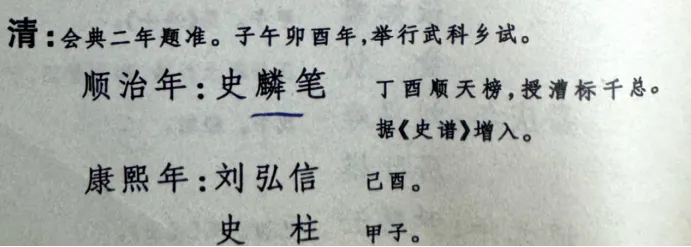 清：会典二年题准。子午卯酉年，举行武科乡试。
顺治年：史麟笔 丁酉顺天榜，授漕标千总。
据《史谱》增入。
康熙年：刘弘信 己酉。
史柱 甲子。